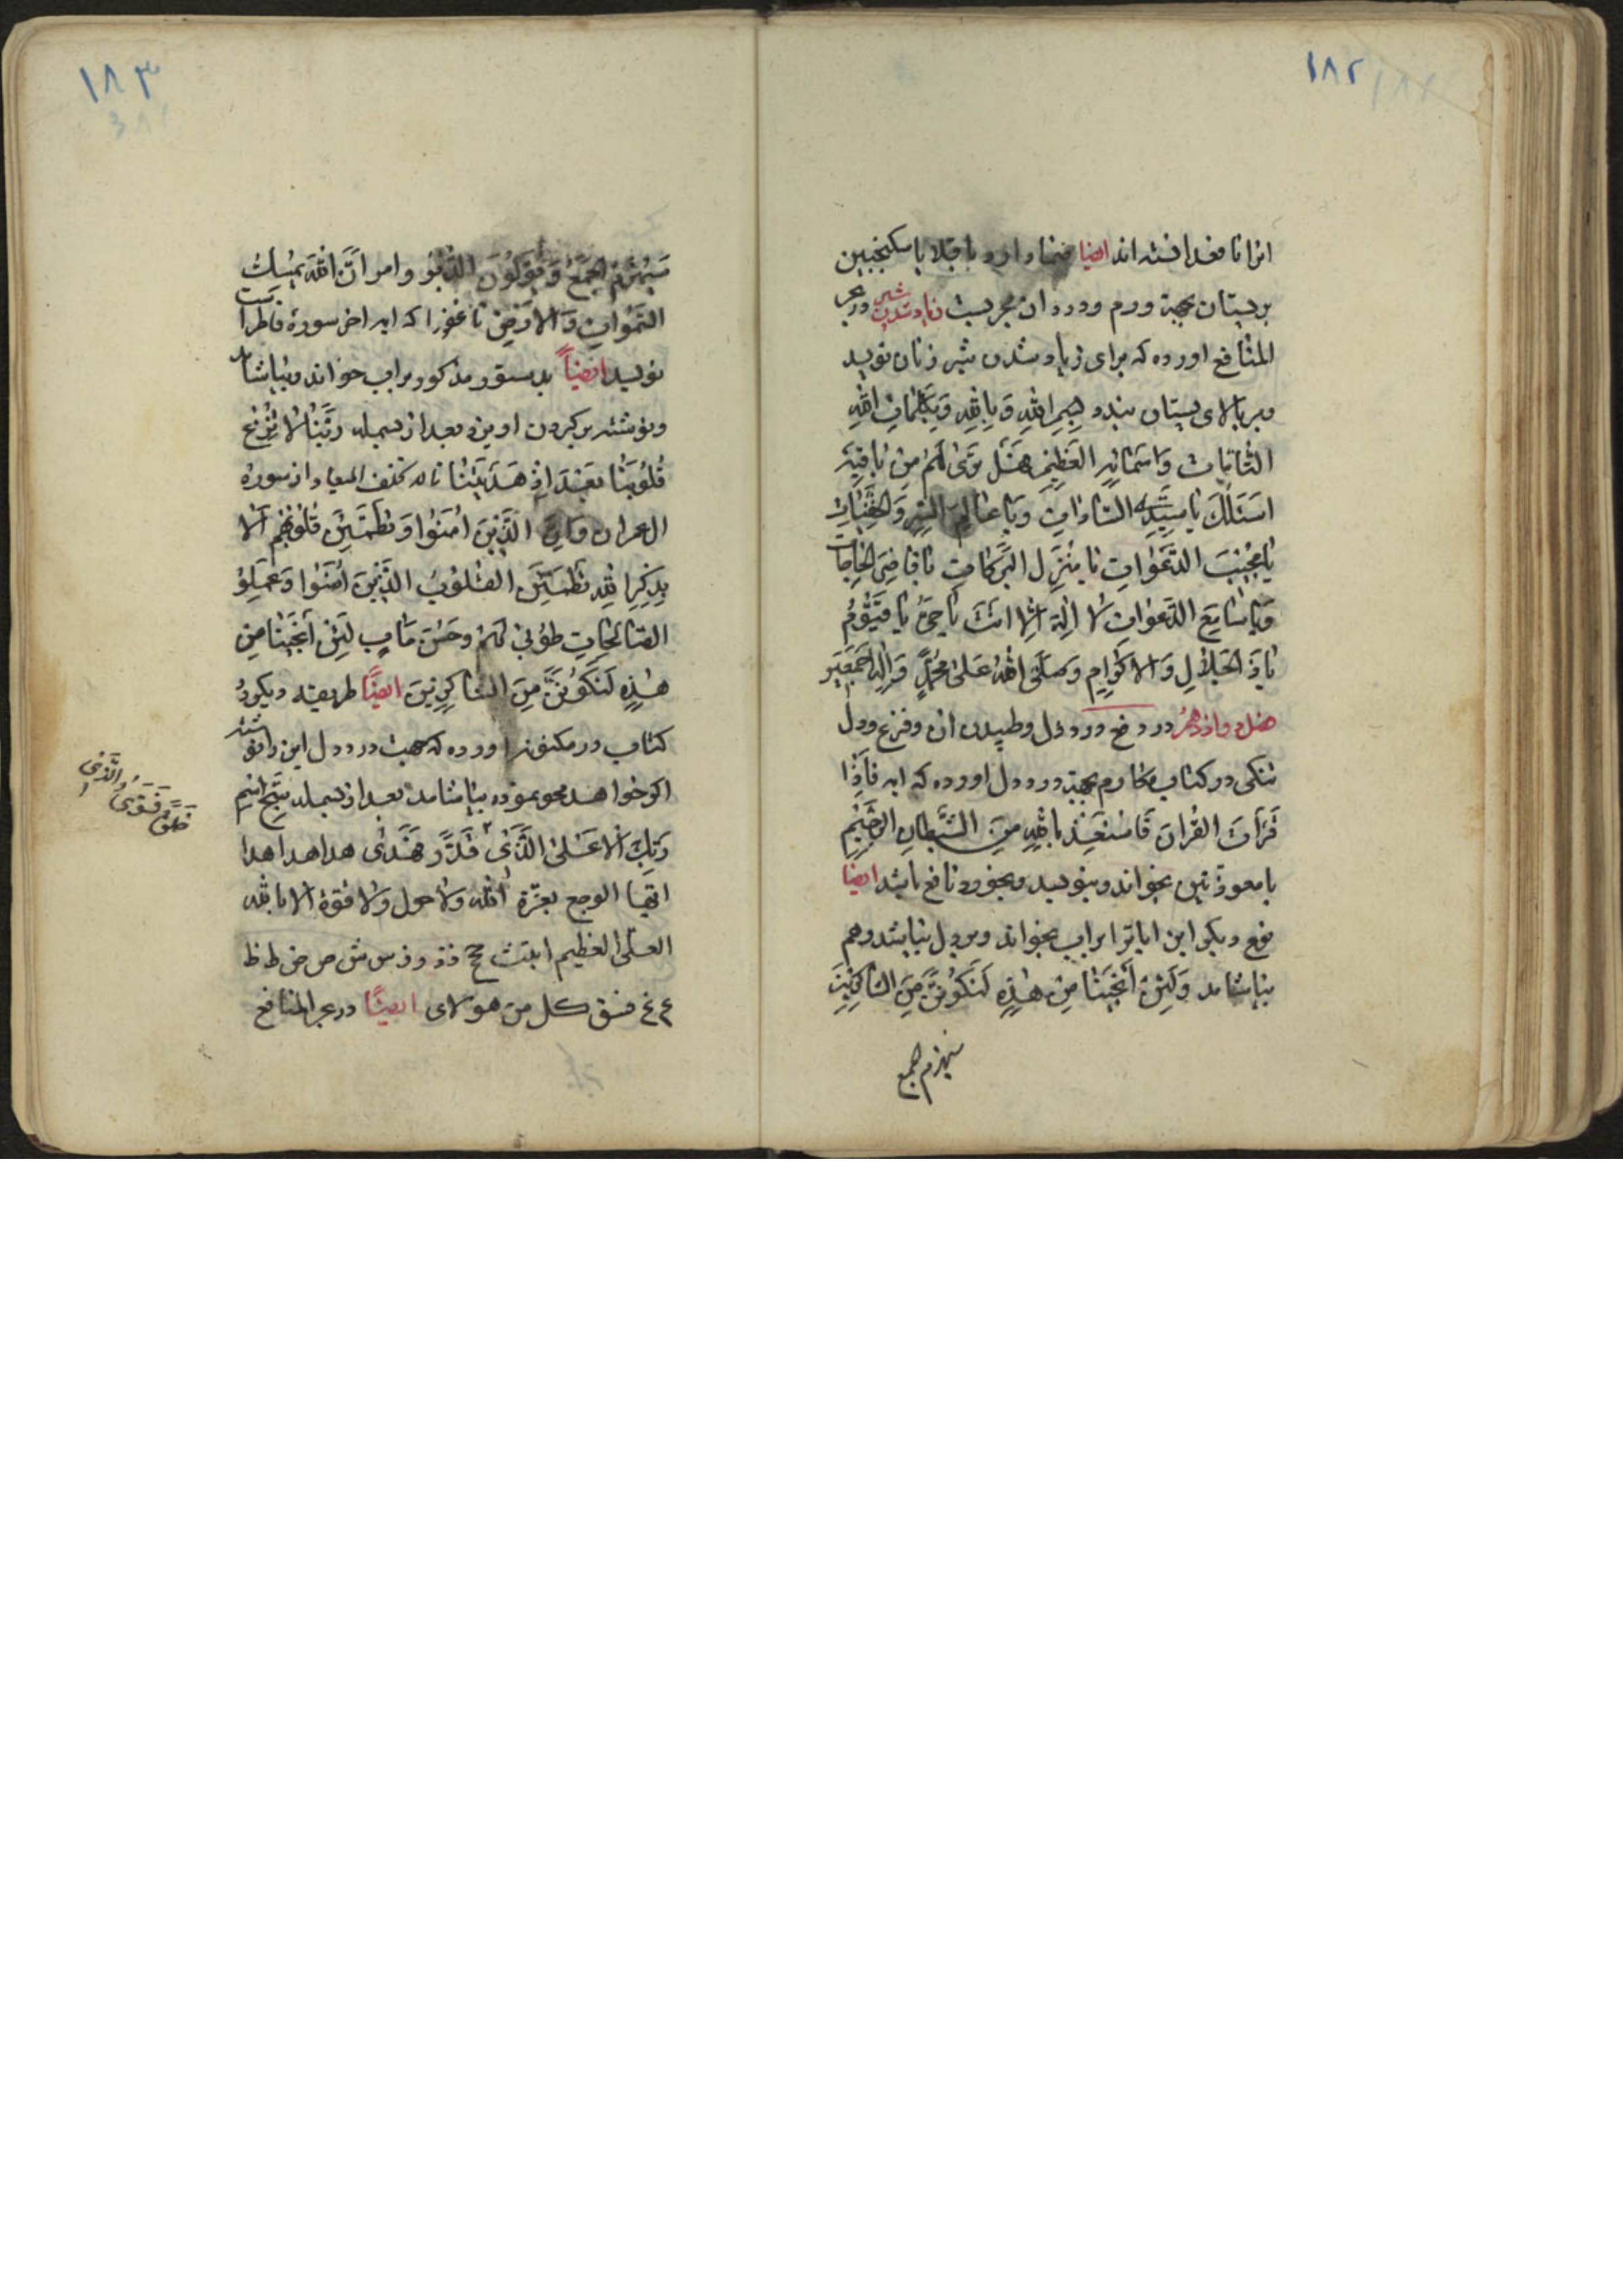 ۱۸۲
انرا نافع دانسته اند ايضا ضماد ارد باقلا با سكنجبين
بر پستان بجهة ورم و درد ان مجربست زياد شدن شير در بحر
المنافع اورده كه براى زياد شدن شير زنان نويسد
و بر بالاى پستان بندد بِسْمِ اللهِ وَ بِاللهِ وَ بِكَلِمَاتِ اللهِ
التَّامَّاتِ وَ اَسْمَائِهِ الْعَظِيمِ هَلْ تَرَىٰ لَهُمْ مِنْ بَاقِيَةٍ
اَسْئَلُكَ يَا سَيِّدَ السَّادَاتِ وَ يَا عَالِمَ السِّرِ وَ الْخَفِيَّاتِ
يَا مُجِيبَ الدَّعَوَاتِ يَا مُنْزِلَ الْبَرَكَاتِ يَا قَاضِىَ الْحَاجَاتِ
وَ يَا سَامِعَ الدَّعَوَاتِ لَا اِلٰهَ اِلَّا اَنْتَ يَا حَىُّ يَا قَيُّوْمُ
يَا ذَا الْجَلَالِ وَ الْاِكْرَامِ وَ صَلَّى اللهُ عَلىٰ مُحَمَّدٍ وَ اٰلِهِ اَجْمَعِيْنَ
فصل دوازدهم در دفع درد دل و طپيدن ان و فزع و دل
تنكى در كتاب مكارم بجهة درد دل اورده كه ايه فَاِذَا
قَرَأتَ الْقُرْانَ فَاسْتَعِذْ بِاللهِ مِنَ الشَّيْطَانِ الرَّجِيْمِ
با معوذتين بخواند و بنويسد و بخورد نافع باشد ايضا
نوع ديكر اين اياترا بر اب بخواند و بر دل بپاشد و هم
بياشامد وَ لَئِنْ اَنْجَيْتَنَا مِنْ هٰذِهِ لَنَكُوْنَنَّ مِنَ الشَّاكِرِيْنَ
سيهزم الجمع
۱۸۳
سَيُهْزَمُ الْجَمْعُ وَ يُوَلُّوْنَ الدُّبُرَ و امر اِنَّ اللهَ يُمْسِكُ
السَّمٰوَاتِ وَ الْاَرْضِ تا غَفُورا كه ايه اخر سوره فاطر است
نويسد ايضاً بدستور مذكور بر اب خواند و بياشامد
و نوشته بر كردن اويزد بعد از بسمله رَبَّنَا لَا تُزِغْ
قُلُوْبَنَا بَعْدَ اِذْ هَدَيْتَنَا تا لا تخلف الميعاد از سوره
ال عمران و ايه الَّذِيْنَ اٰمَنُوْا وَ تَطْمَئِنُّ قُلُوْبُهُمْ اَلَا
بِذِكْرِ اللهِ تَطْمَئِنُّ الْقُلُوْبُ الَّذِيْنَ اٰمَنُوْا وَ عَمِلُوْ
الصَّالِحَاتِ طُوْبىٰ لَهُمْ وَ حُسْنَ مَاٰبٍ لَئِنْ اَنْجَيْتَنَا مِنْ
هٰذِهِ لَنَكُوْنَنَّ مِنَ الشَّاكِرِيْنَ ايضًا طريقه ديكر در
كتاب در مكنون اورده كه جهت درد دل اين را نوشته
اكر خواهد محو نموده بياشامد بعد از بسمله سَبِّحِ اسْمِ
رَبِّكَ الْاَعْلىٰ الَّذِىْ قَدَّرَ فَهَدَىٰ هدا هدا هدا
خَلَقَ فَسَوّىٰ وَ الَّذِى
ايها الوجع بعزة الله و لا حول و لا قوة الا بالله
العلى العظيم ابتث ج ح خ د ذ ر ز س ش ص ض ط ظ
ع غ فسق كل من هولاى ايضًا در بحر المنافع